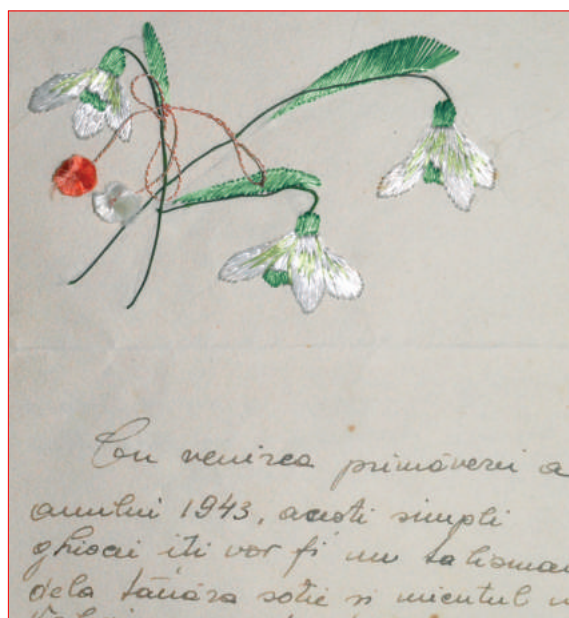 Cu venirea primăverii a
anului 1943, acesti simpli
ghiocei iti vor fi un talisman
dela tânăra sotie si micutul